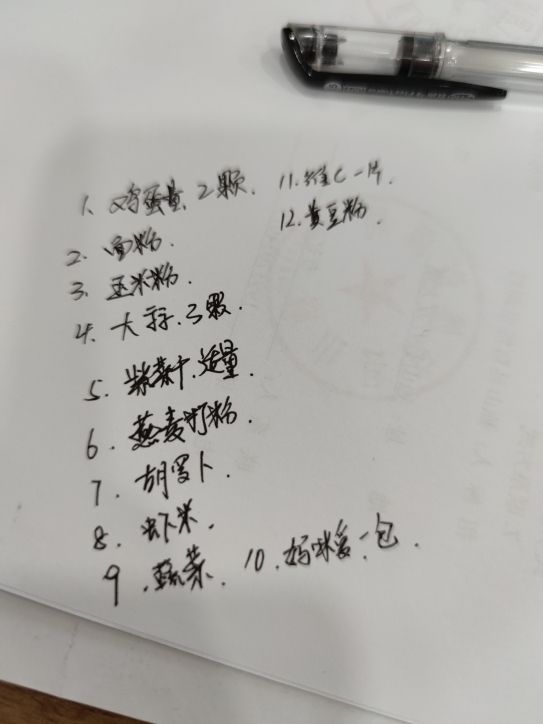 1. 鸡蛋黄 2颗.
2. 面粉.
3. 玉米粉.
4. 大蒜. 3颗.
5. 紫菜干.适量.
6. 燕麦打粉.
7. 胡萝卜.
8. 虾米.
9. 蔬菜.
10. 妈咪爱一包.
11. 维C一片.
12. 黄豆粉.